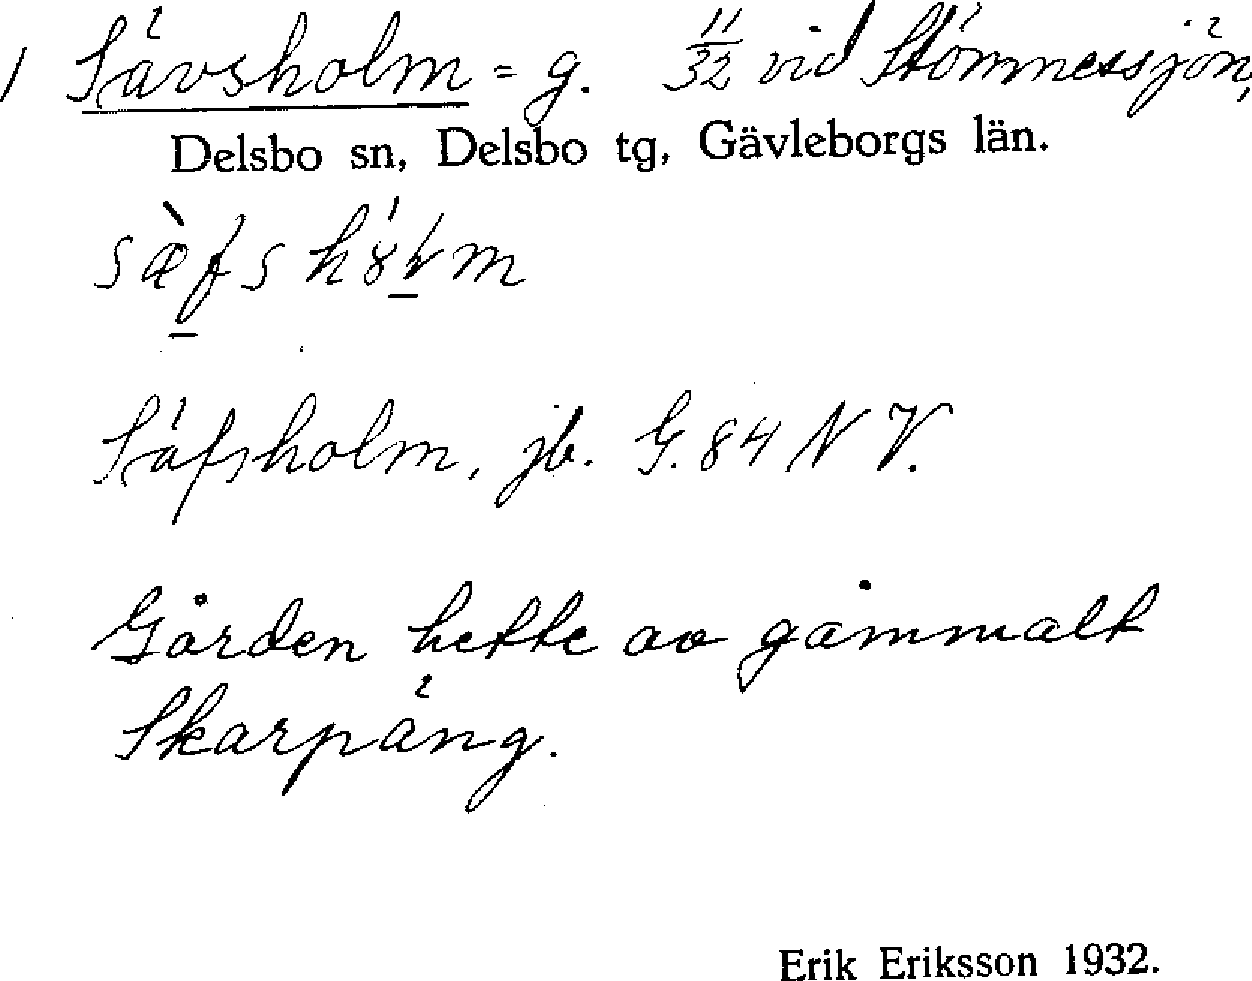 1 Sävsholm = g. 11/32 vid Stömnessjön,
Delsbo sn, Delsbo tg, Gävleborgs län.
Säfsholm, jb. G. 84 N V.
Gården hette av gammalt
Skarpäng.
Erik Eriksson 1932.